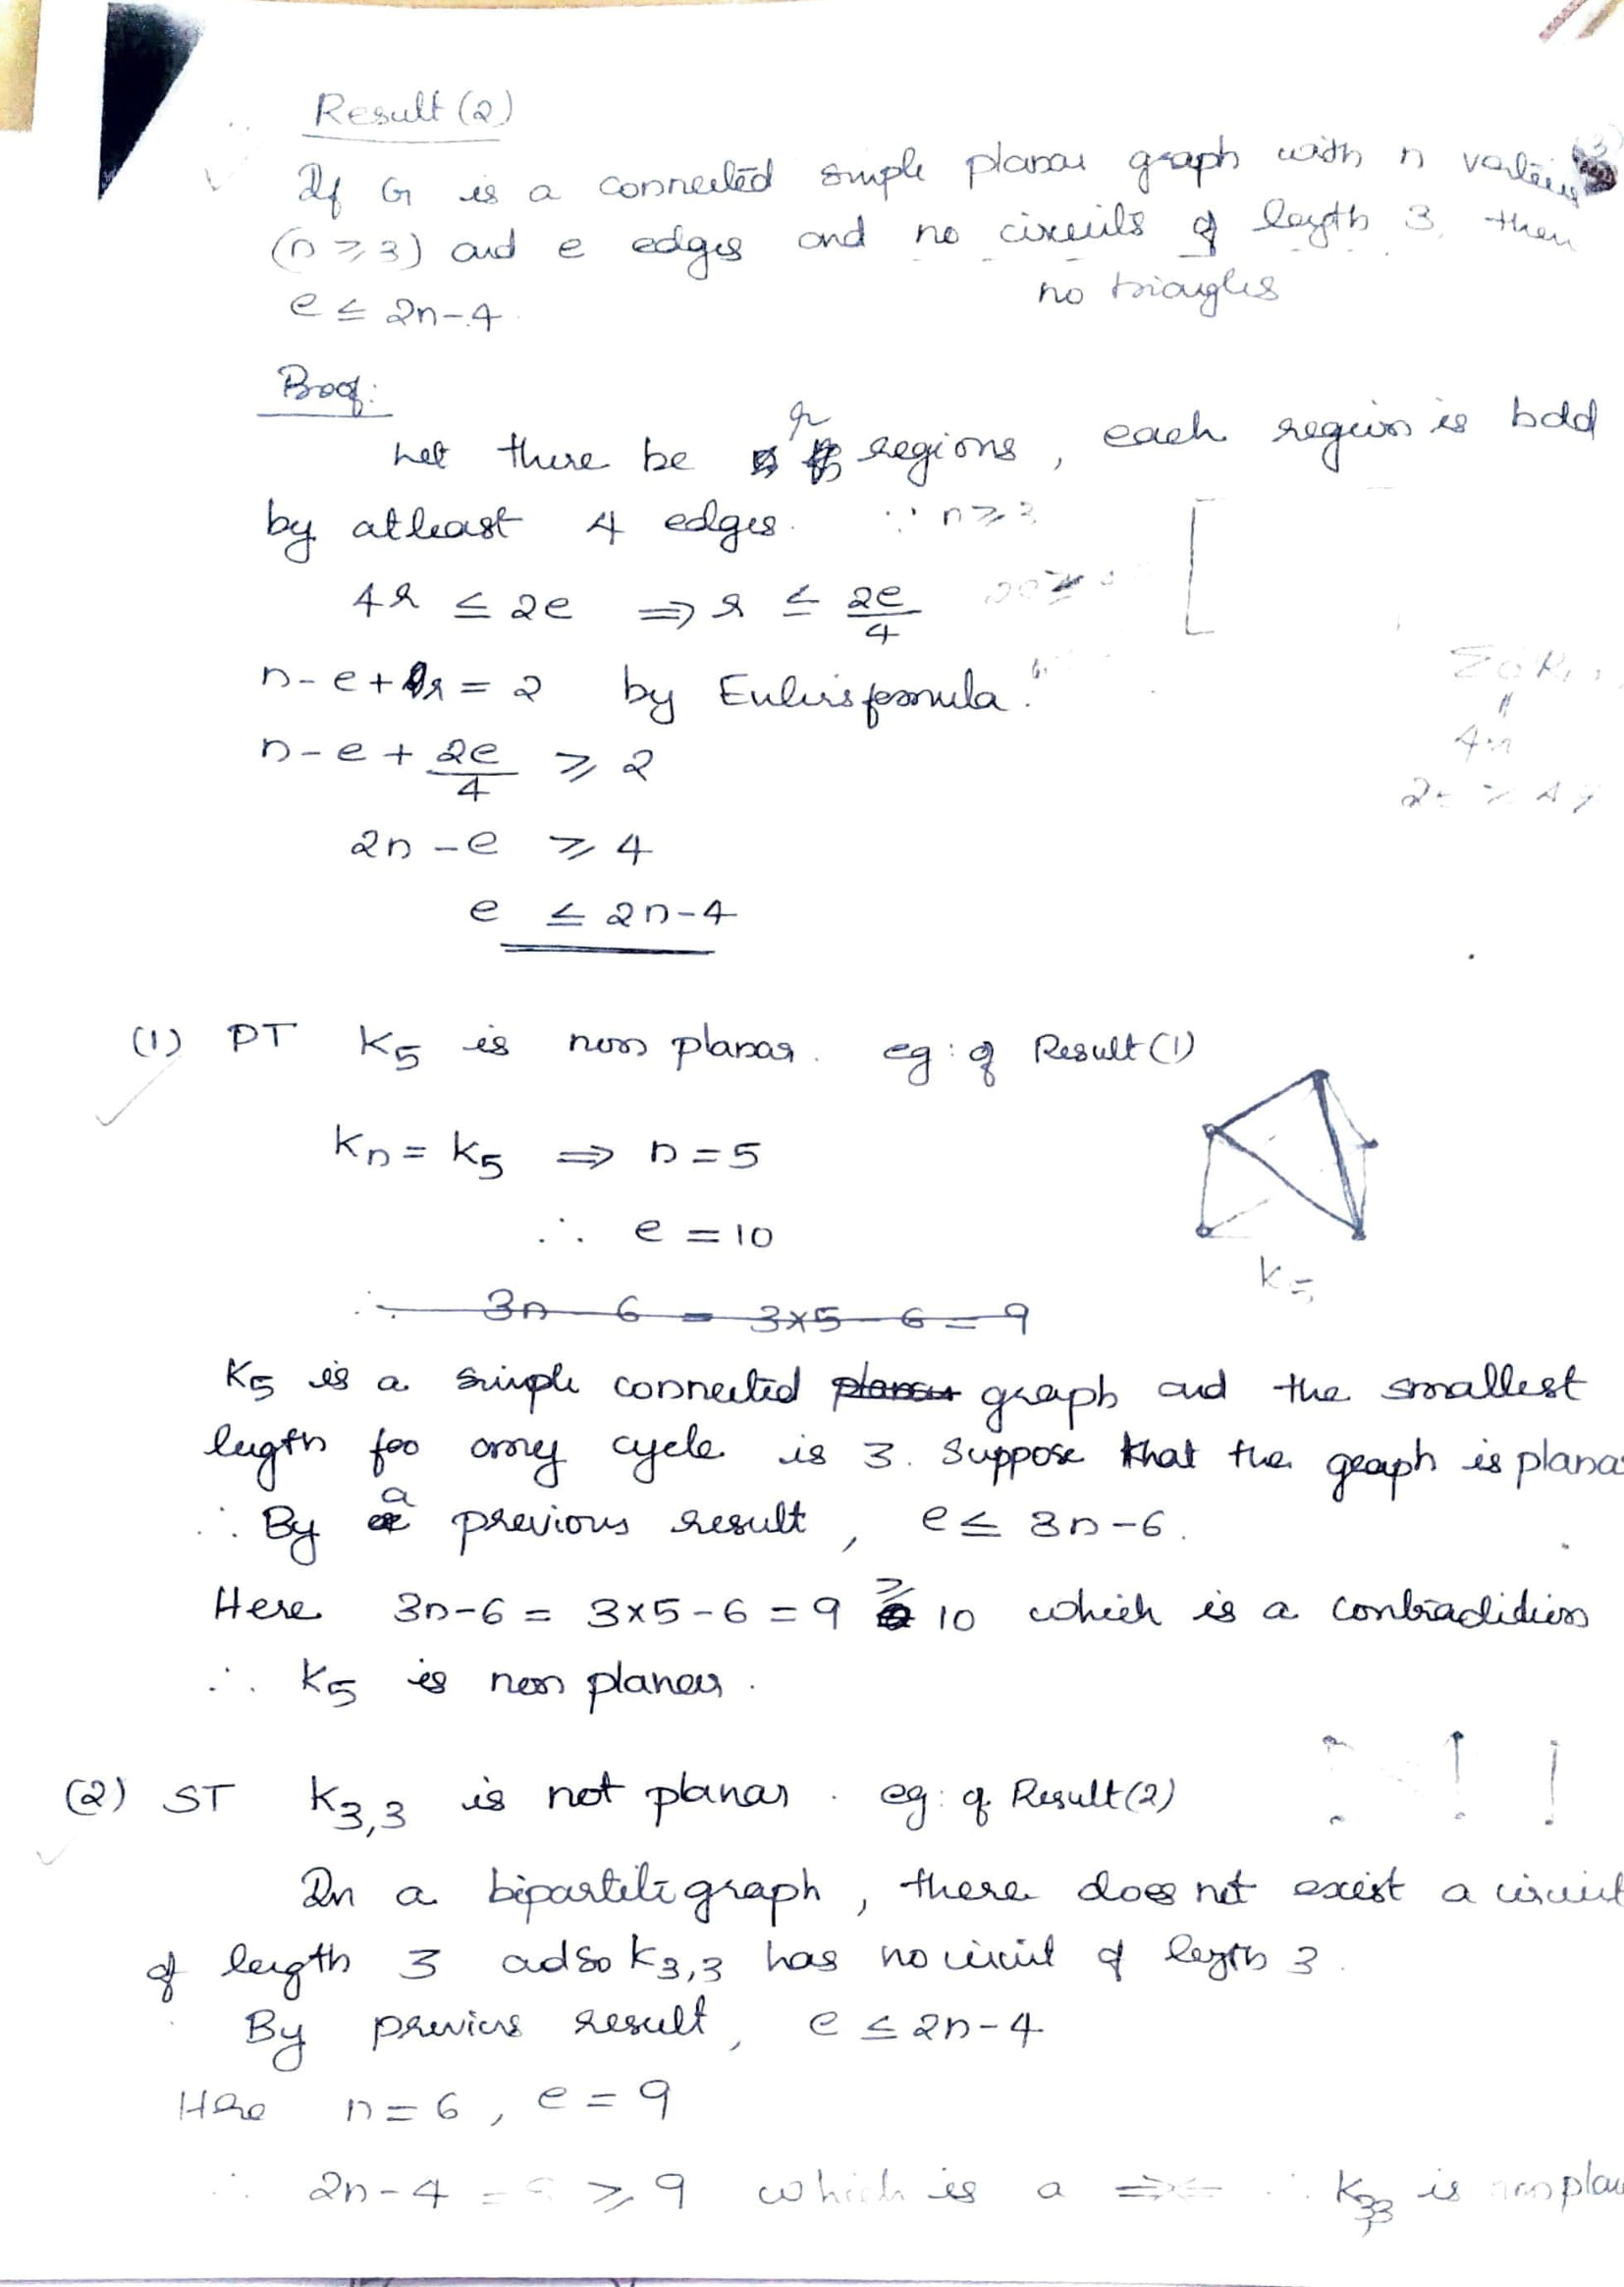 Result (2)
If G is a connected simple planar graph with n vertices
(n ≥ 3) and e edges and no circuits of length 3, then
no triangles
e ≤ 2n-4.
Proof:
Let there be r regions, each region is bdd
by atleast 4 edges. ∵ n ≥ 3
4r ≤ 2e ⇒ r ≤ 2e/4
n-e+r = 2 by Euler's formula.
n-e+ 2e/4 ≥ 2
4r
2n-e ≥ 4
e ≤ 2n-4
(1) PT K5 is non planar. eg: of Result (1)
Kn = K5 ⇒ n = 5
∴ e = 10
K5
∴ 3n-6 = 3×5-6 = 9
K5 is a simple connected planar graph and the smallest
length for any cycle is 3. Suppose that the graph is plana
∴ By a previous result, e ≤ 3n-6.
Here 3n-6 = 3×5-6 = 9 ≥ 10 which is a contradiction
∴ K5 is non planar.
(2) ST K3,3 is not planar. eg: of Result (2)
In a bipartite graph, there does not exist a circuit
of length 3 and so K3,3 has no circuit of length 3.
By previous result, e ≤ 2n-4
Here n = 6, e = 9
∴ 2n-4 = 8 ≥ 9 which is a ⇒⇐ ∴ K3,3 is non plan